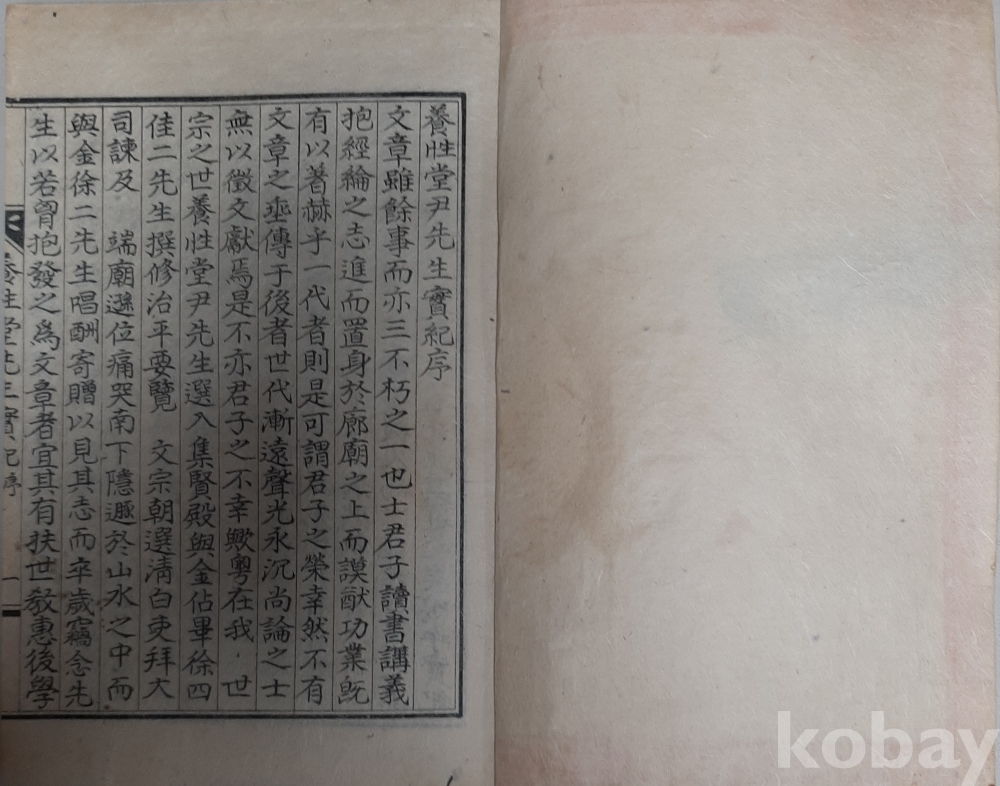 養性堂尹先生實紀序
文章雖餘事而亦三不朽之一也士君子讀書講義
抱經綸之志進而置身於廊廟之上而謨猷功業旣
有以著赫乎一代者則是可謂君子之榮幸然不有
文章之垂傳于後者世代漸遠聲光永沉尚論之士
無以徵文獻焉是不亦君子之不幸歟粤在我 世
宗之世養性堂尹先生選入集賢殿與金佔畢徐四
佳二先生撰修治平要覽 文宗朝選淸白吏拜大
司諫及 端廟遜位痛哭南下隱遯於山水之中而
與金徐二先生唱酬寄贈以見其志而卒歲竊念先
生以若胷抱發之爲文章者宜其有扶世敎惠後學
養性堂先生實紀序 一
kobay